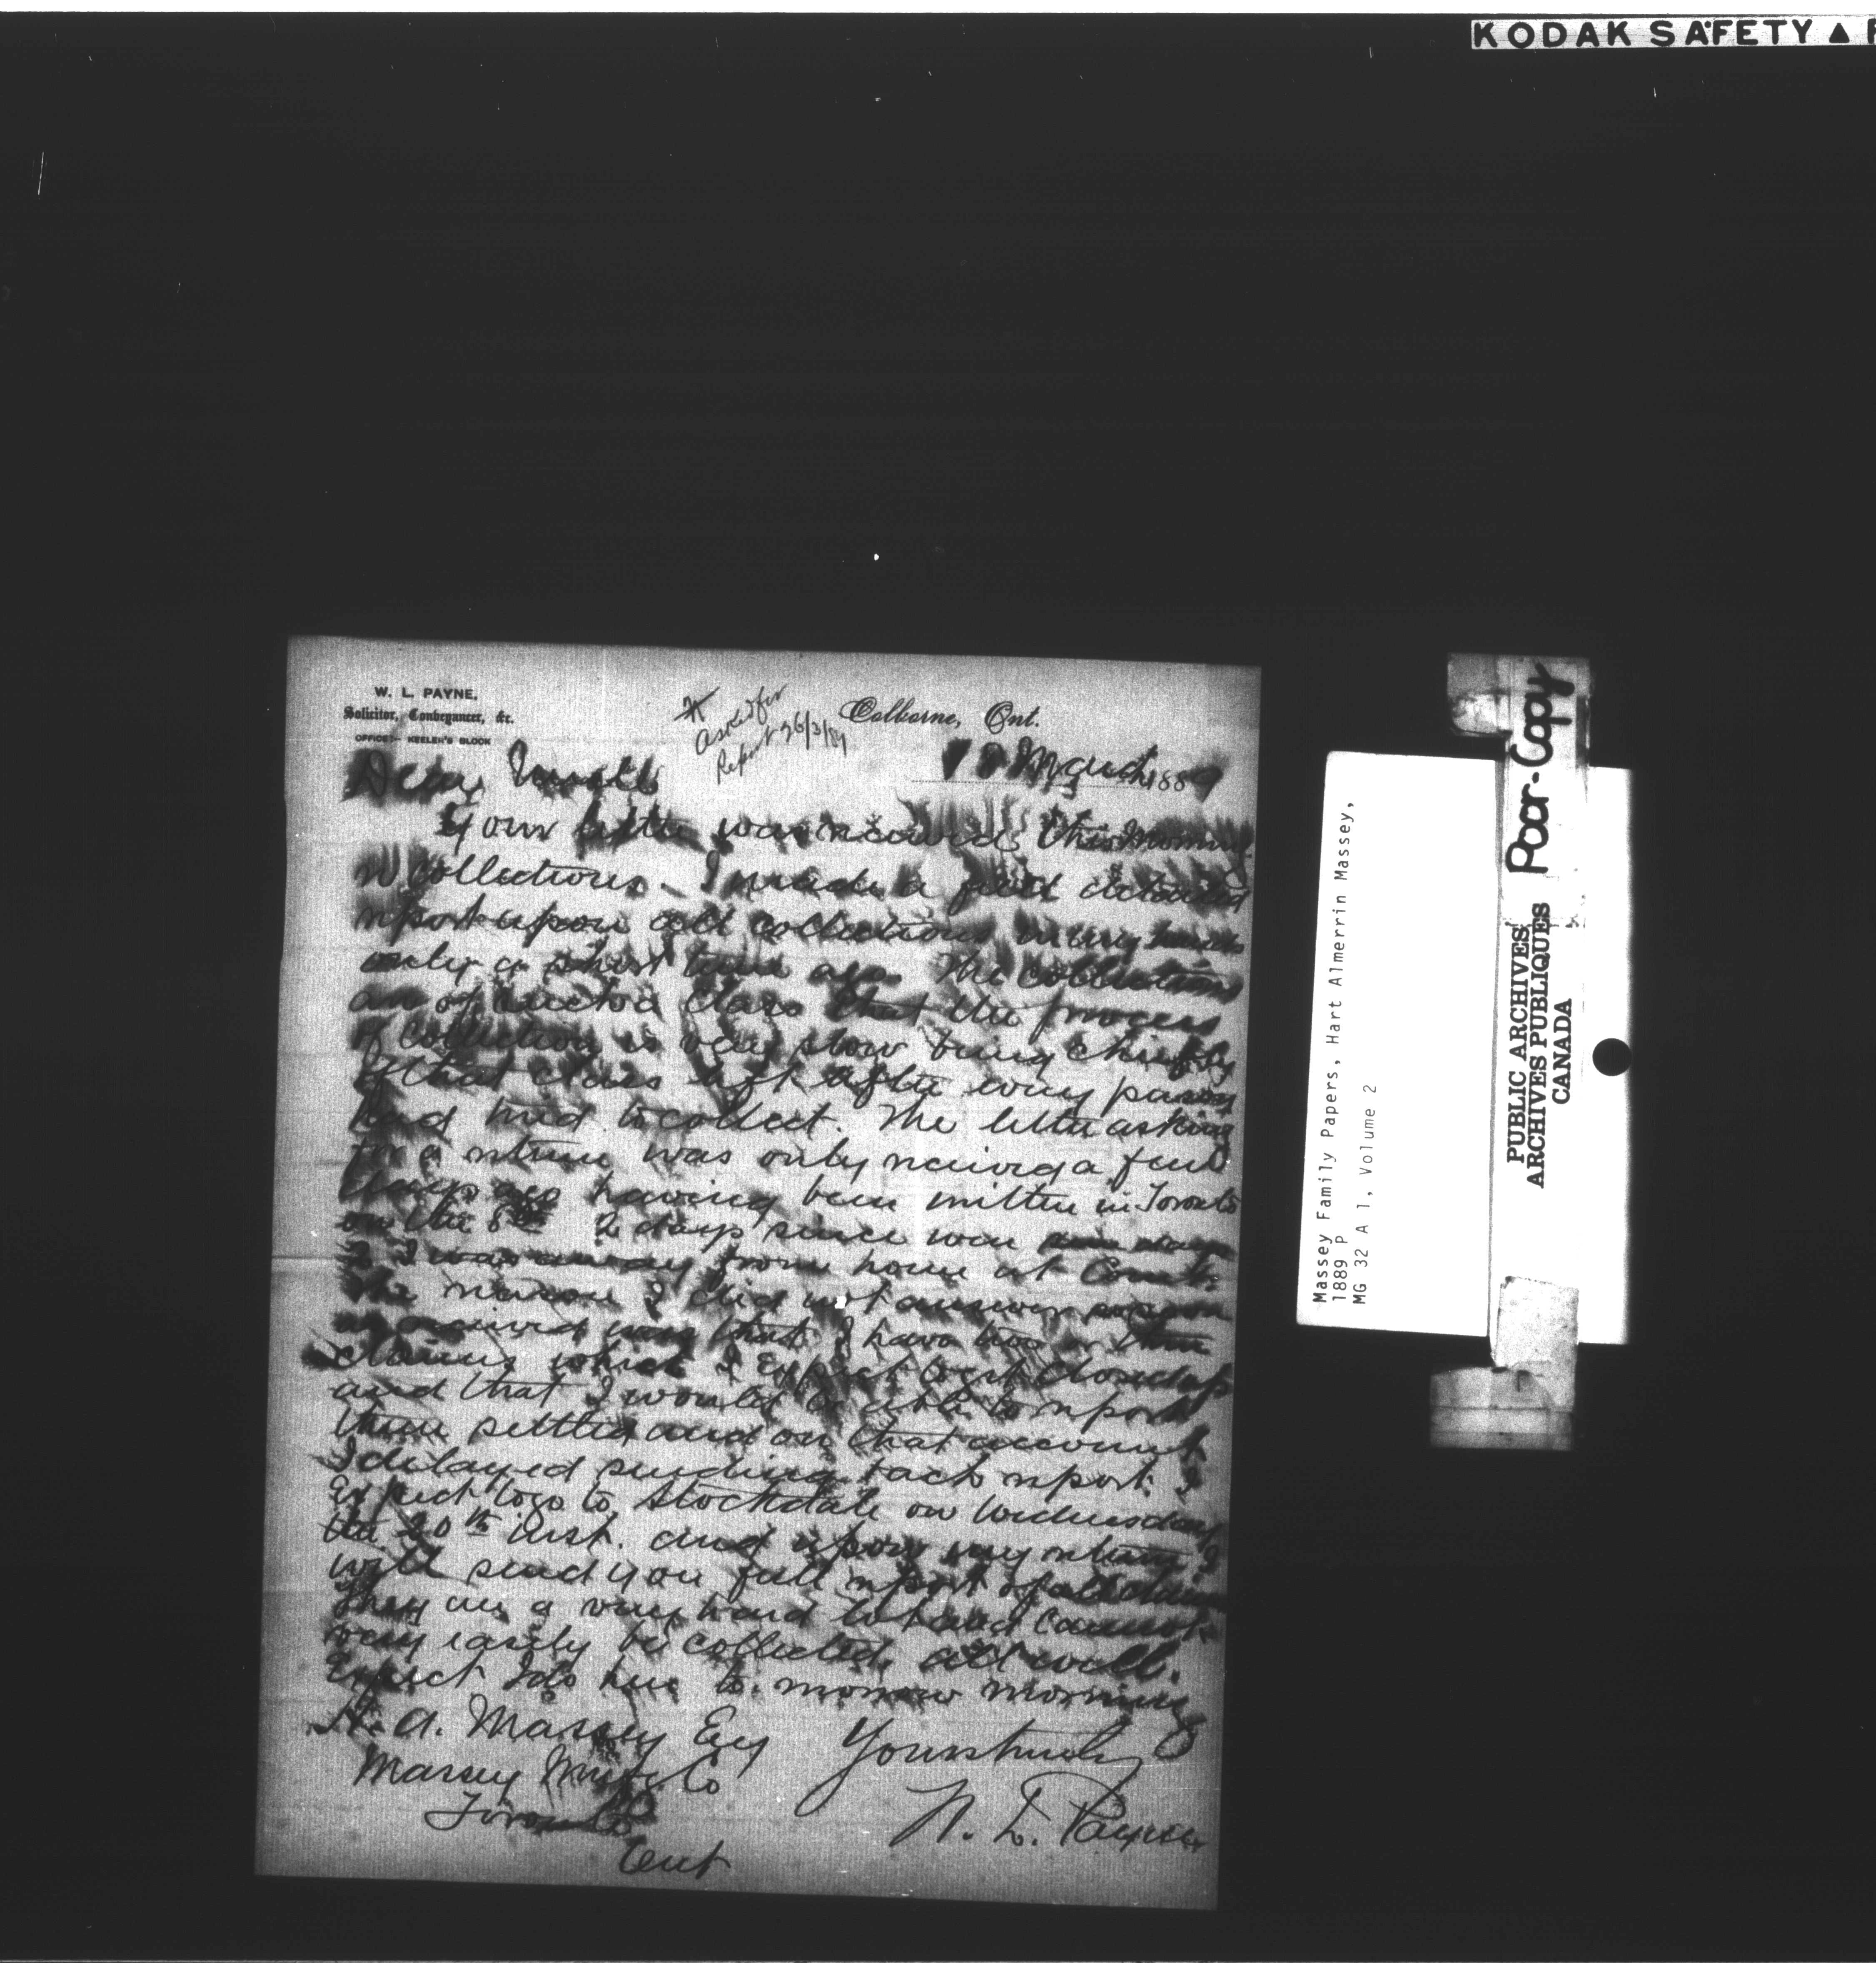 KODAK SAFETY ▲
W. L. PAYNE,
Solicitor, Conveyancer, &c.
OFFICE:- KEELER'S BLOCK
Asked for
Report 26/3/89
Colborne, Ont.
18 March 1889
Dear Uncle
Your letter was received this morning
re Collections. I made a full detailed
report upon all collections in my hands
only a short time ago. The collections
are of such a class that the process
of collection is very slow being chiefly
of that class left after every person
had tried to collect. The letter asking
for a return was only received a few
days ago having been written in Toronto
on the 8th 2 days since were
I was away from home at Court.
The reason I did not answer as soon
as received was that I have two or three
claims which I expect to get closed up
and that I would be able to report
them settled and on that account
I delayed sending back report. I
Expect to go to Stockdale on Wednesday
the 20th inst. and upon my return I
will send you full report of all claims
They are a very hard lot and cannot
very easily be collected. All well.
Expect here to-morrow morning
H. A. Massey Esq Yours truly
Massey Mnfg Co
W. L. Payne
Toronto
Ont
Massey Family Papers, Hart Almerrin Massey,
1889 P
MG 32 A 1, Volume 2
PUBLIC ARCHIVES
ARCHIVES PUBLIQUES
CANADA
Poor-Copy